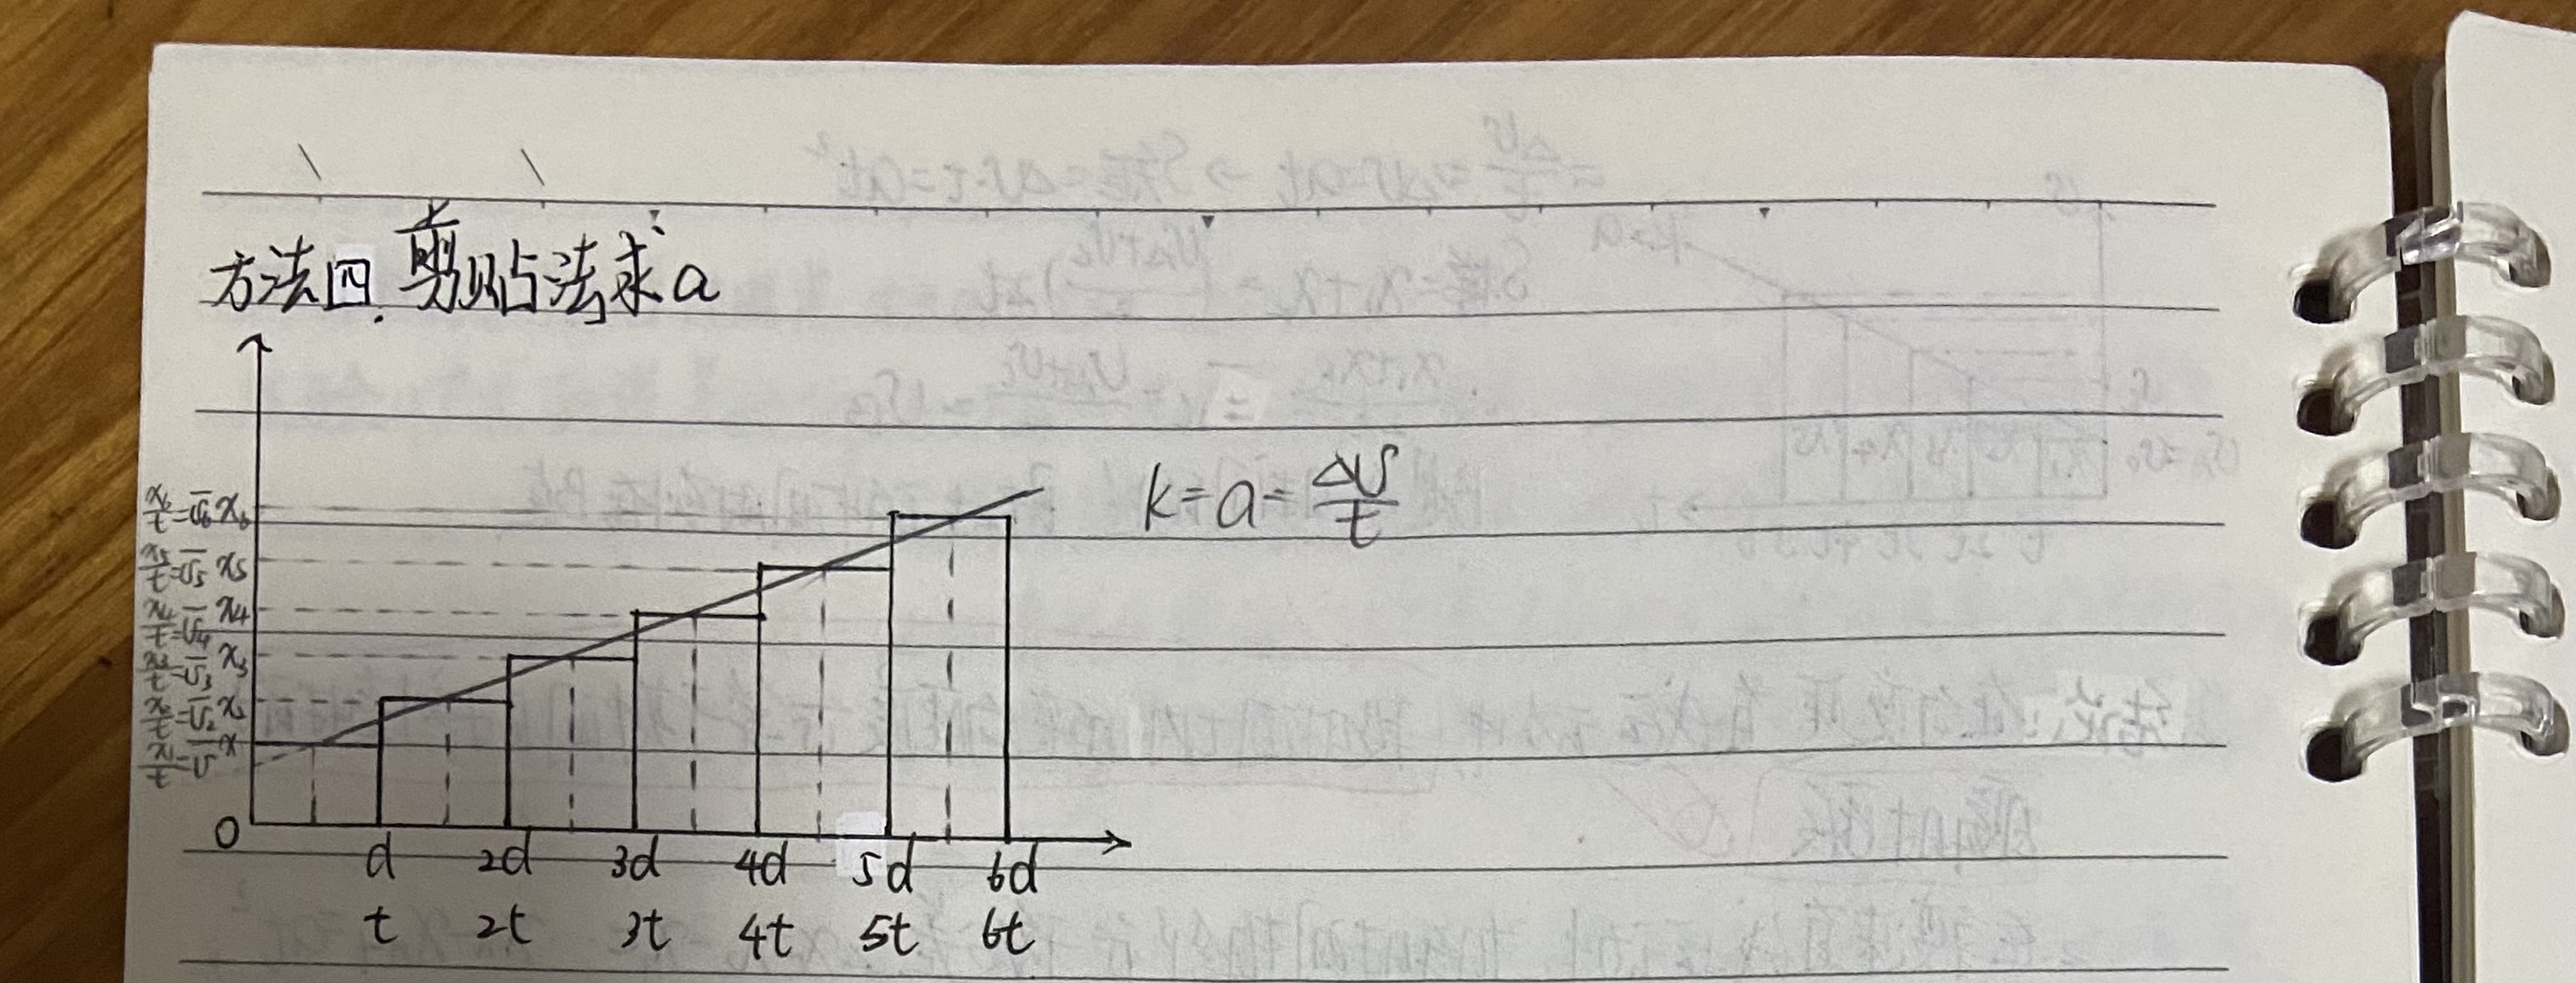 方法四.剪贴法求a
k=a=Δv/t
x₆/t=v̅₆ x₆
x₅/t=v̅₅ x₅
x₄/t=v̅₄ x₄
x₃/t=v̅₃ x₃
x₂/t=v̅₂ x₂
x₁/t=v̅ x
0
d 2d 3d 4d 5d 6d
t 2t 3t 4t 5t 6t